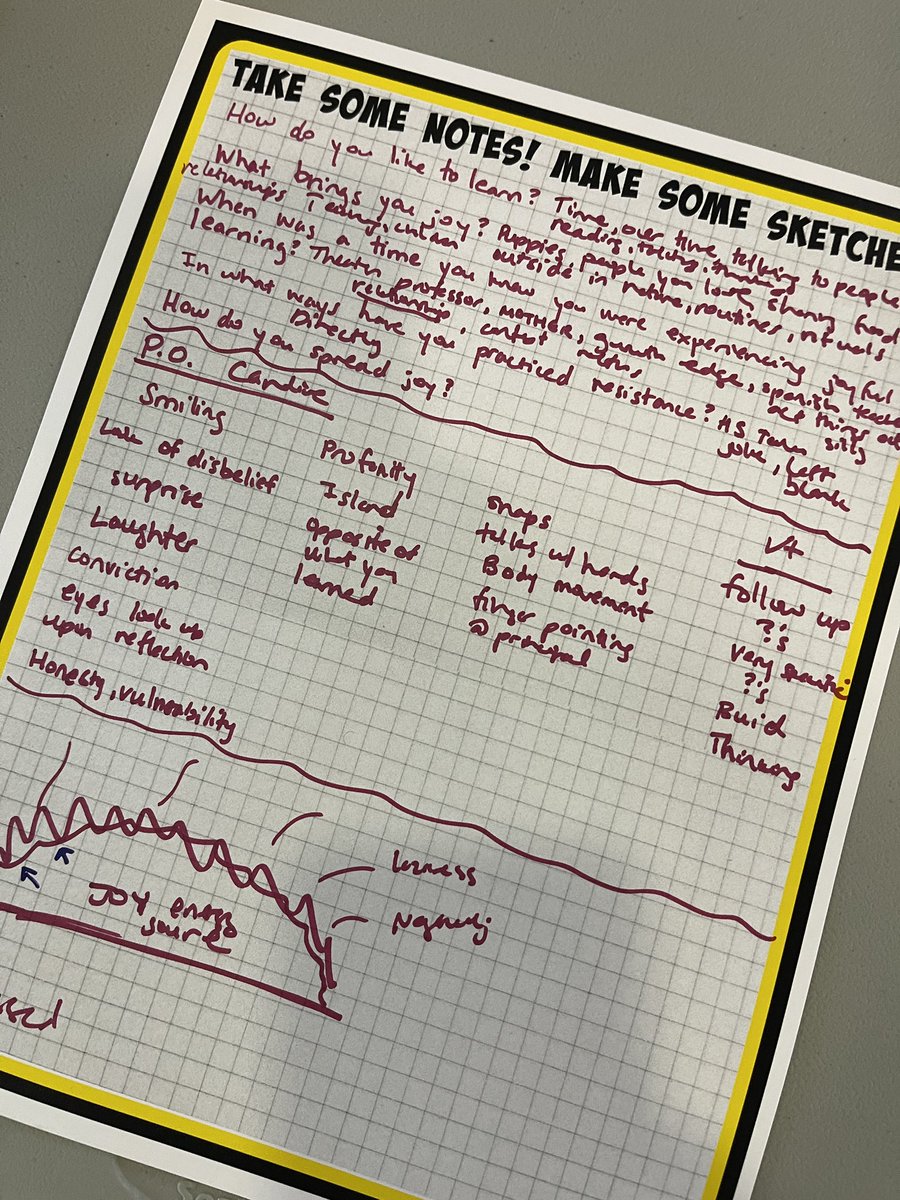 TAKE SOME NOTES! MAKE SOME SKETCHE
How do you like to learn? Time, over time, talking to people
reading, talking,
What brings you joy? Puppies, people you love, sharing food
relationships outside in nature, routines, rituals
When was a time you knew you were experiencing joyful
learning? Theatre Professor, MOTHER, growth edge, spanish teacher
relationships, context act things out
In what ways have you practiced resistance? HS silly
Directly joke, Left
blank
How do you spread joy?
P.O. Candice
Smiling
Lack of disbelief
surprise
Laughter
conviction
eyes look up
upon reflection
Honesty, vulnerability
Profanity
Island
opposite of
what you
learned
snaps
talks w/ hands
Body movement
finger pointing
@ principal
V4
follow up
?'s
very
?'s
Build
Thinking
Joy energy
source